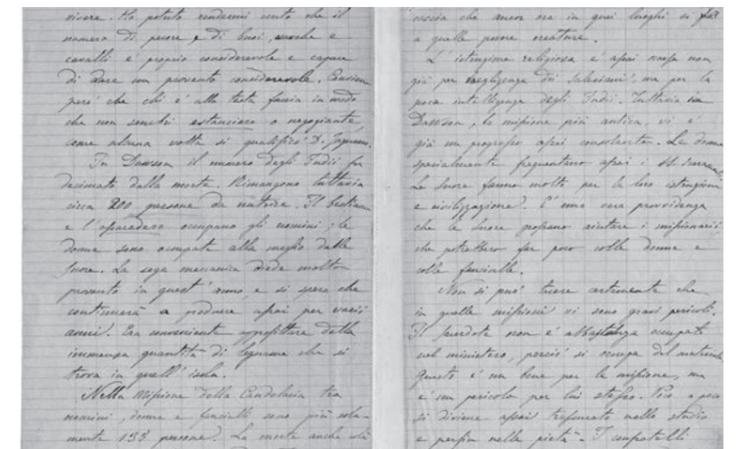 vivere. Ho potuto rendermi conto che il
numero di pecore, e di buoi, vacche e
cavalli è proprio considerevole e capace
di dare un provento considerevole. Conviene
però che chi è alla testa faccia in modo
che non sembri estanciero o negoziante,
come alcuna volta si qualificò D.
In Dawson il numero degli Indii fu
decimato dalla morte. Rimangono tuttavia
circa 200 persone da nutrire. Il bestiame
e l'aparadero occupano gli uomini; le
donne sono occupate alla meglio dalle
suore. La sega meccanica diede molto
provento in quest'anno, e si spera che
continuerà a produrre assai per varii
anni. Era conveniente approfittare della
immensa quantità di legname che si
trova in quell'isola.
Nella Missione della Candelaia tra
uomini, donne e fanciulli sono più sola-
mente 133 persone. La morte anche di
che ancor ora in quei luoghi si fa
a quelle povere creature.
L'istruzione religiosa è assai scarsa non
già per negligenza dei Salesiani, ma per la
poca intelligenza degli Indii. Tuttavia in
Dawson, la missione più antica, vi è
già un progresso assai consolante. Le donne
specialmente frequentano assai i SS.
Le Suore fanno molto per la loro istruzione
e civilizzazione. È una vera provvidenza
che le Suore possano aiutare i missionarii,
che potrebbero far poco colle donne e
colle fanciulle.
Non si può tacere certamente che
in quelle missioni vi sono gravi pericoli.
Il sacerdote non è abbastanza occupato
nel ministero, perciò si occupa del materiale.
Questo è un bene per la missione, ma
è un pericolo per lui stesso. Poco a poco
si diviene assai trascurati nello studio
e persin nella pietà. I confratelli